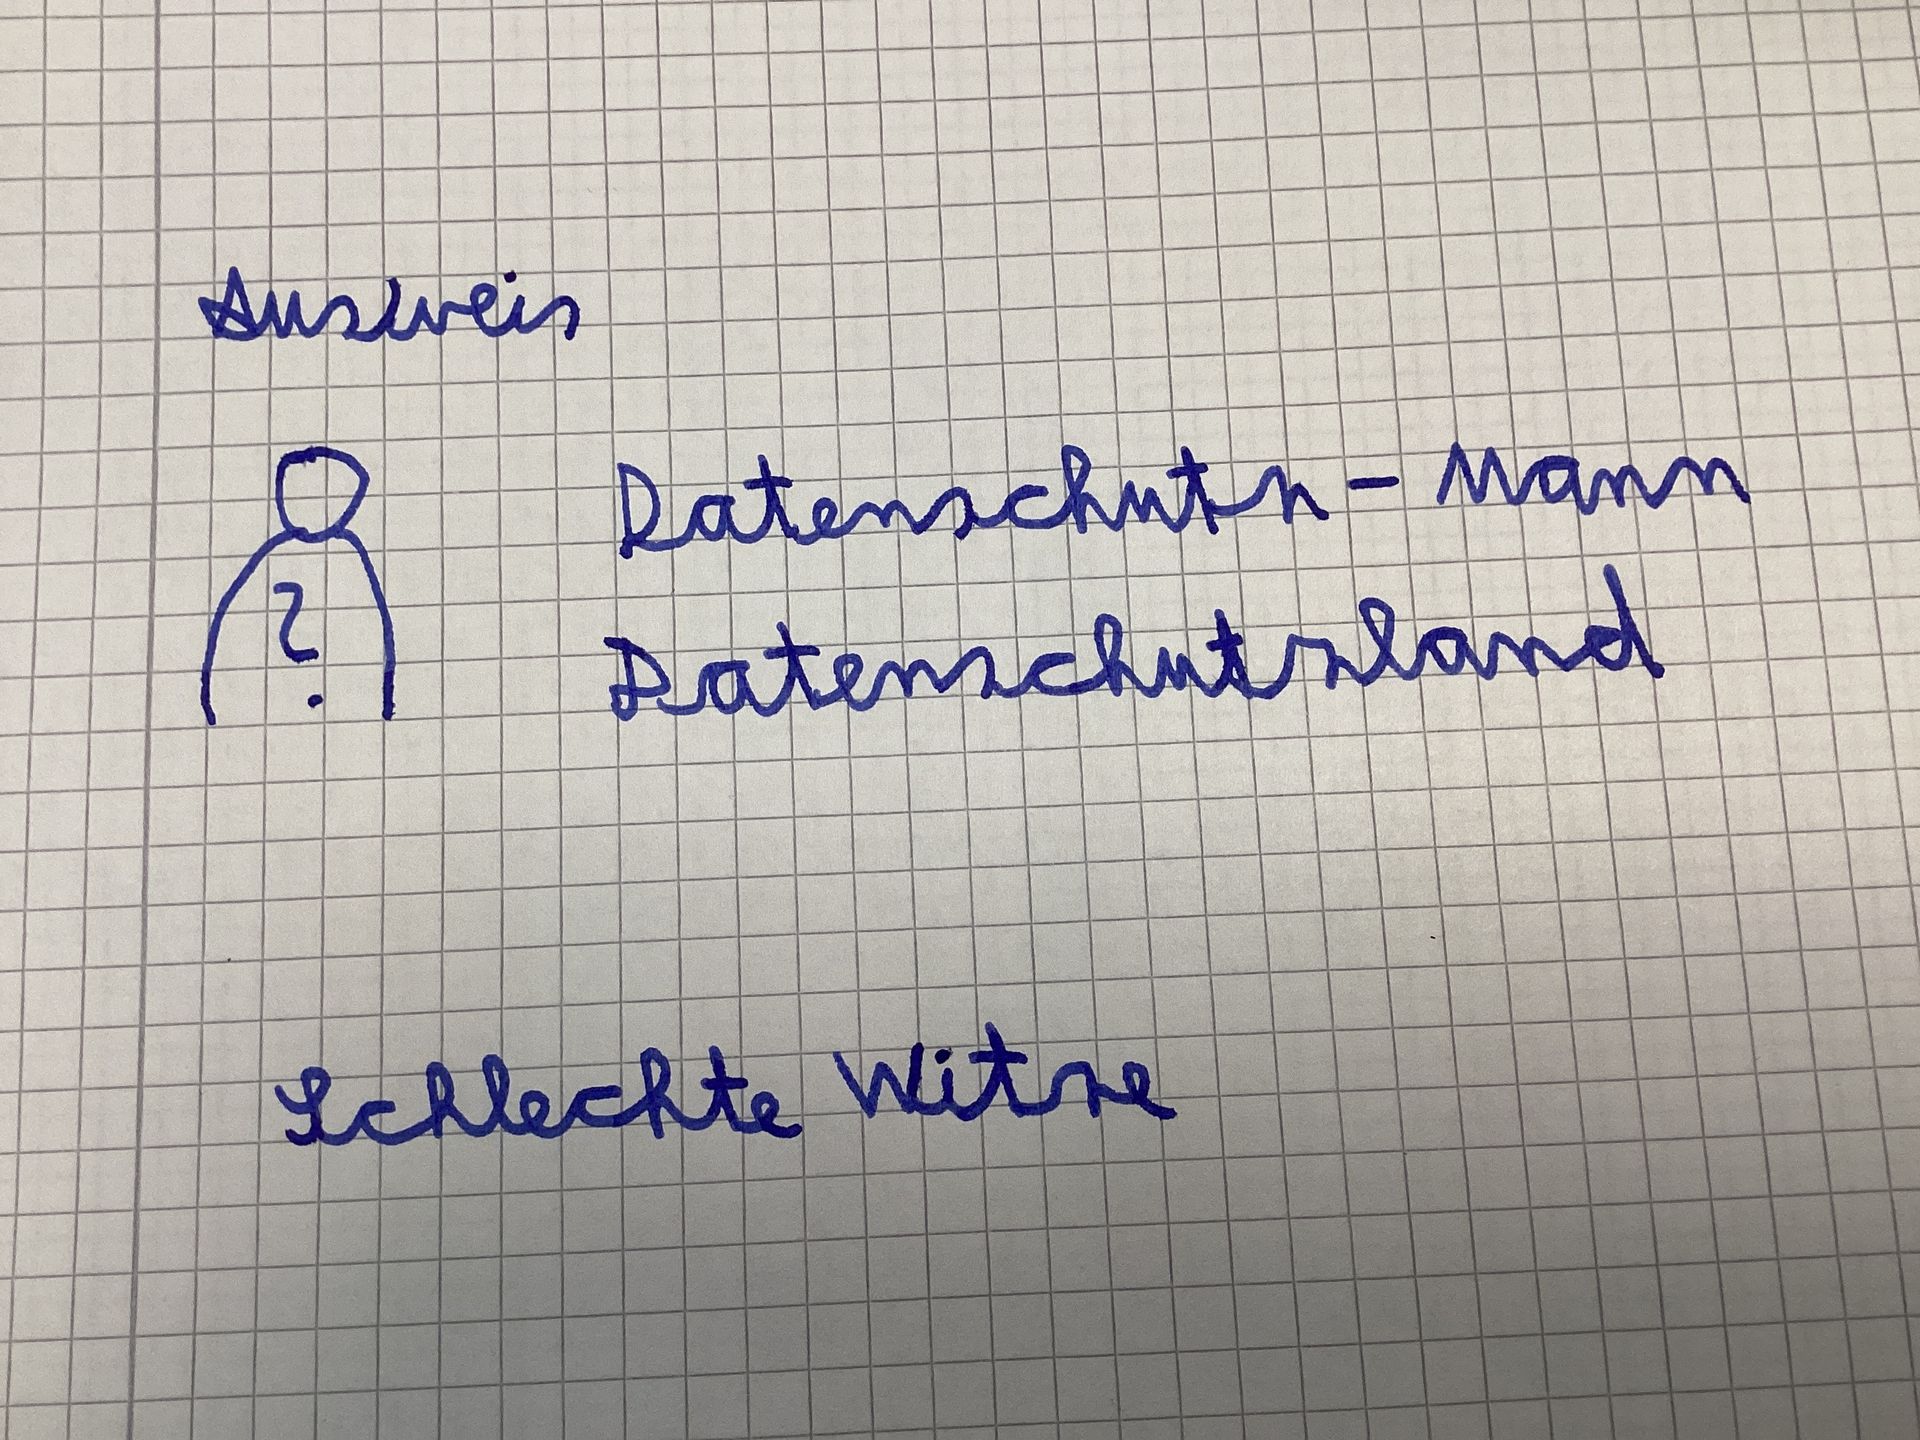 Ausweis
?
Datenschutz - Mann
Datenschutzland
Schlechte Witze